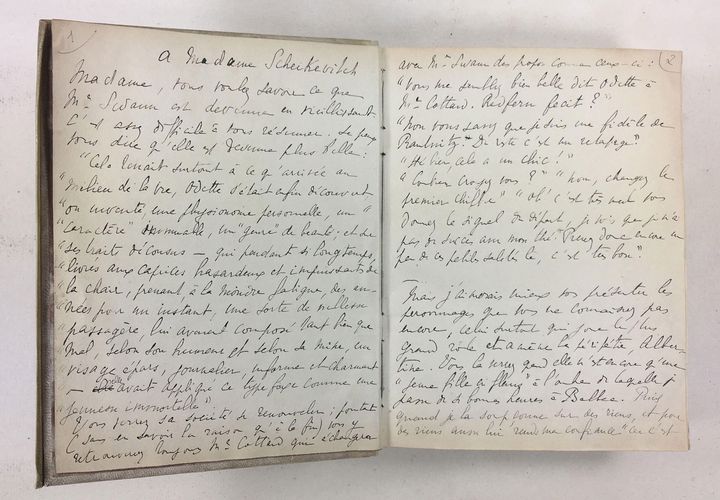 1
A Madame Scheikevitch
Madame, vous voulez savoir ce que
Me Swann est devenue en vieillissant
C'est assez difficile à vous résumer. Je peux
vous dire qu'elle est devenue plus belle :
"Cela tenait surtout à ce qu'arrivée au
"milieu de la vie, Odette s'était enfin découvert
"ou inventé, une physionomie personnelle, un
"caractère" immuable, un "genre" de beauté ; et sur
"ses traits décousus — qui pendant si longtemps,
"livrés aux caprices hasardeux et impuissants de
"la chair, prenant à la moindre fatigue, des an-
"nées pour un instant, une sorte de vieillesse
"passagère, lui avaient composé tant bien que
mal, selon son humeur et selon sa mine, un
visage épars, journalier, informe et charmant
— avait appliqué ce type fixe comme une
"jeunesse immortelle"
Vous verrez sa société se renouveler ; pourtant
(sans en savoir la raison qu'à la fin) vous y
retrouverez toujours Me Cottard qui échangera
2
avec Me Swann des propos comme ceux-ci :
"Vous me semblez bien belle dit Odette à
Me Cottard. Redfern fecit ?"
"Non vous savez que je suis une fidèle de
Raudnitz. Du reste c'est un retapage"
"Hé bien, cela a un chic !"
"Combien croyez vous ?" "Non, changez le
premier chiffre" "Oh! c'est très mal vous
donnez le signal du départ, je vois que je n'ai
pas de succès avec mon thé." "Prenez donc encore un
peu de ces petites saletés là, c'est très bon".
Mais j'aimerais mieux vous présenter les
personnages que vous ne connaissez pas
encore, celui surtout qui joue le plus
grand rôle et amène la péripétie, Alber-
tine. Vous la verrez quand elle n'est encore qu'une
"jeune fille en fleurs" à l'ombre de laquelle je
passe de si bonnes heures à Balbec. Puis
quand je la soupçonne sur des riens, et pour
des riens aussi lui rends ma confiance "car c'est